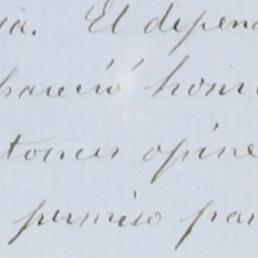 ra. El depend
pareció hom
tonces opine
permiso par